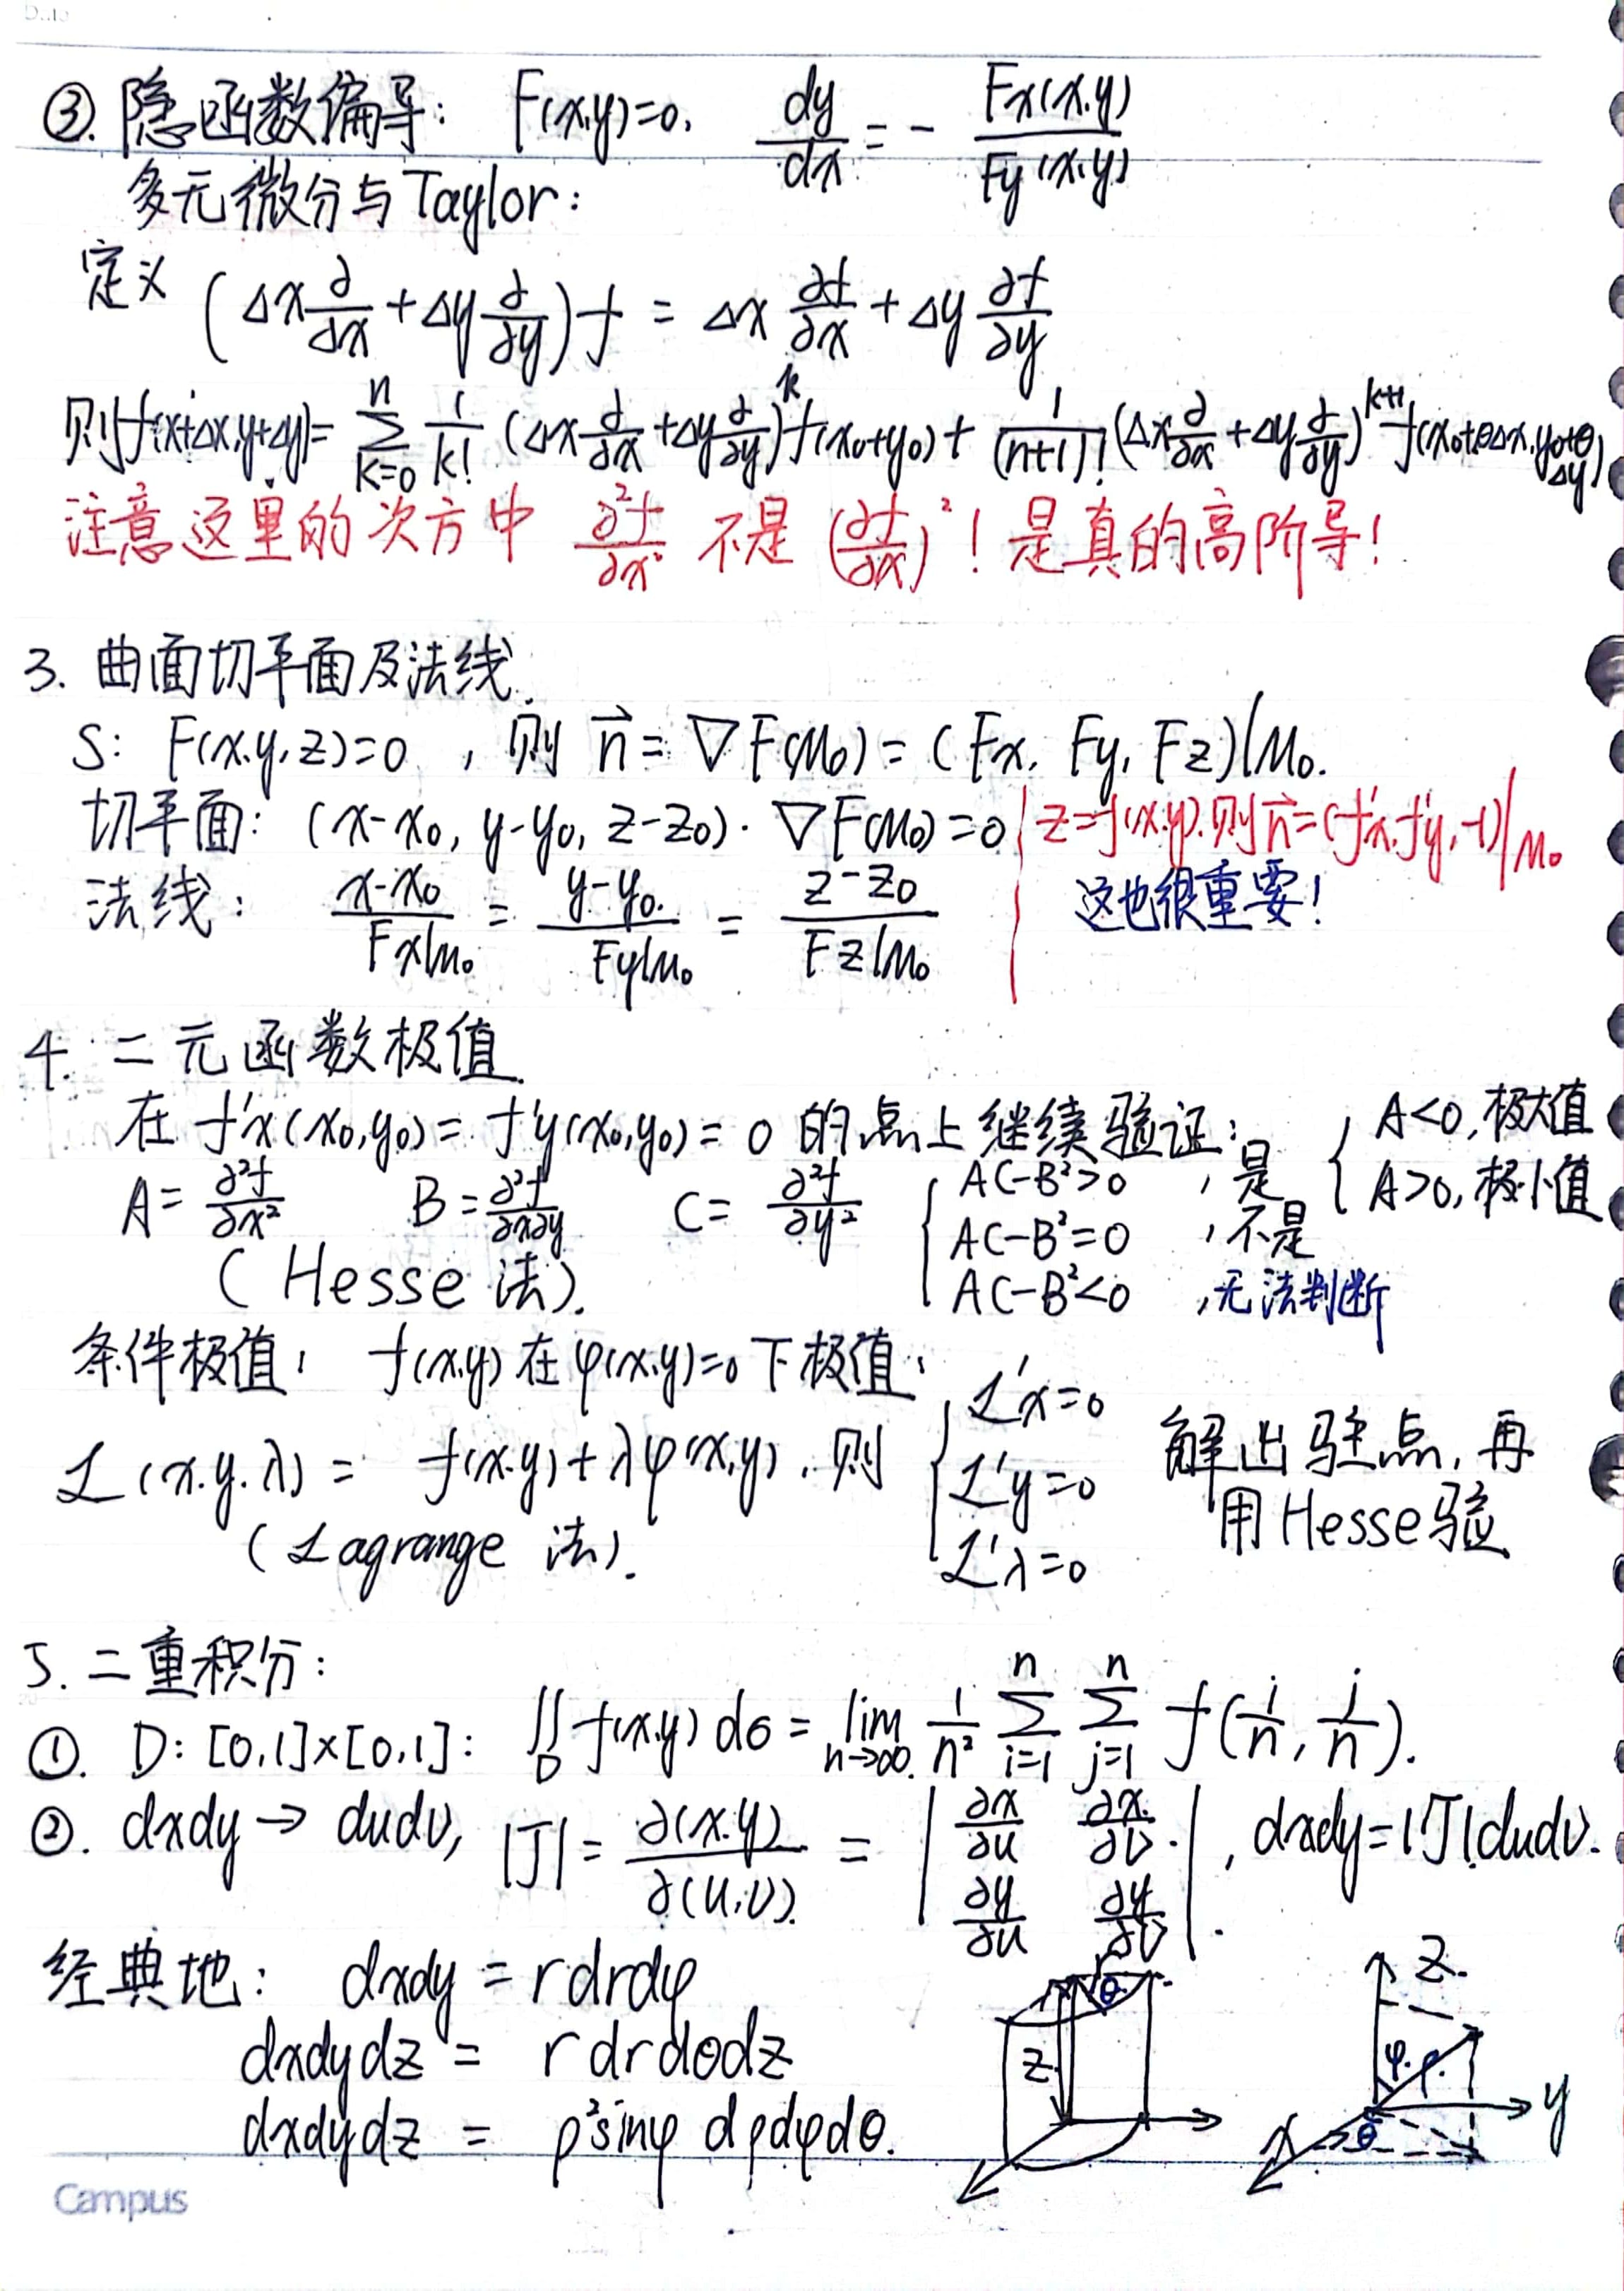 ③. 隐函数偏导: F(x,y)=0, dy/dx = - Fx(x,y)/Fy(x,y)
多元微分与Taylor:
定义 (Δx ∂/∂x + Δy ∂/∂y) f = Δx ∂f/∂x + Δy ∂f/∂y
则 f(x+Δx,y+Δy) = ∑_{k=0}^{n} 1/k! (Δx ∂/∂x + Δy ∂/∂y)^k f(x₀+y₀) + 1/(n+1)! (Δx ∂/∂x + Δy ∂/∂y)^{k+1} f(x₀+θΔx, y₀+θΔy)
注意这里的次方中 ∂²f/∂x² 不是 (∂f/∂x)²! 是真的高阶导!
3. 曲面切平面及法线.
S: F(x,y,z)=0, 则 n⃗ = ∇F(M₀) = (Fx, Fy, Fz)|M₀.
切平面: (x-x₀, y-y₀, z-z₀)·∇F(M₀)=0
z=f(x,y). 则 n⃗=(f'x, f'y, -1)|M₀
法线: (x-x₀)/Fx|M₀ = (y-y₀)/Fy|M₀ = (z-z₀)/Fz|M₀
这也很重要!
4. 二元函数极值.
在 f'x(x₀,y₀) = f'y(x₀,y₀) = 0 的点上继续验证:
A = ∂²f/∂x² B = ∂²f/∂x∂y C = ∂²f/∂y²
(Hesse 法).
AC-B²>0 , 是 { A<0, 极大值
A>0, 极小值
AC-B²=0 , 不是
AC-B²<0 , 无法判断
条件极值: f(x,y) 在 φ(x,y)=0 下极值:
L(x,y,λ) = f(x,y)+λφ(x,y). 则
(Lagrange 法).
L'x=0
L'y=0
L'λ=0
解出驻点, 再
用 Hesse 验
5. 二重积分:
①. D: [0,1]×[0,1]: ∬_D f(x,y) dσ = lim_{n→∞} 1/n² ∑_{i=1}^{n} ∑_{j=1}^{n} f(i/n, j/n).
②. dxdy → dudv, |J| = ∂(x,y)/∂(u,v) = | ∂x/∂u ∂x/∂v |
| ∂y/∂u ∂y/∂v | , dxdy=|J|dudv.
经典地: dxdy = rdrdφ
dxdydz = rdrdθdz
dxdydz = ρ²sinφ dρdφdθ.
r θ
z
z.
φ. ρ.
y
θ
x
Campus